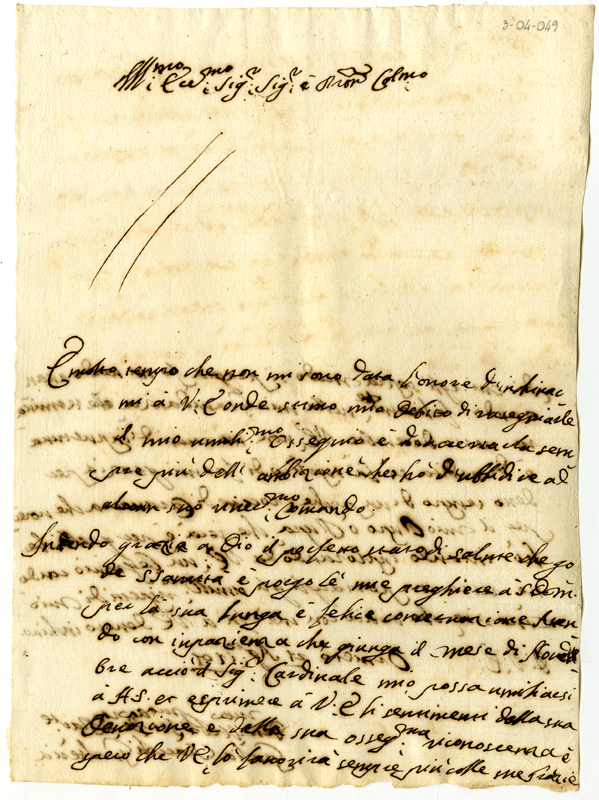 3-04-049
Ill.mo i Ecc.mo Sig.r Sig.r e Pron Colmo
È molto tempo che non mi sono data l'onore d'inchinar
mi à V: E onde stimo mio debito di rasegniarle
il mio umil.mo Ossequio è
pre più dell' ambizione che hò d'ubbidire al
alcun suo river.mo Comando.
Intendo grazie a Dio il perfetto stato di salute che go
de S è porgo le mie preghiere à S
per la sua lunga è felice conservazione
do con inpazienza che giunga il mese di Novem
bre acciò il Sig.r Cardinale mio possa umiliarsi
à A.S. et esprimere à V: E li sentimenti della sua
devozione e della sua osseq.ma riconoscenza è
spero che V:E: lo favorirà sempre più colle me grazie